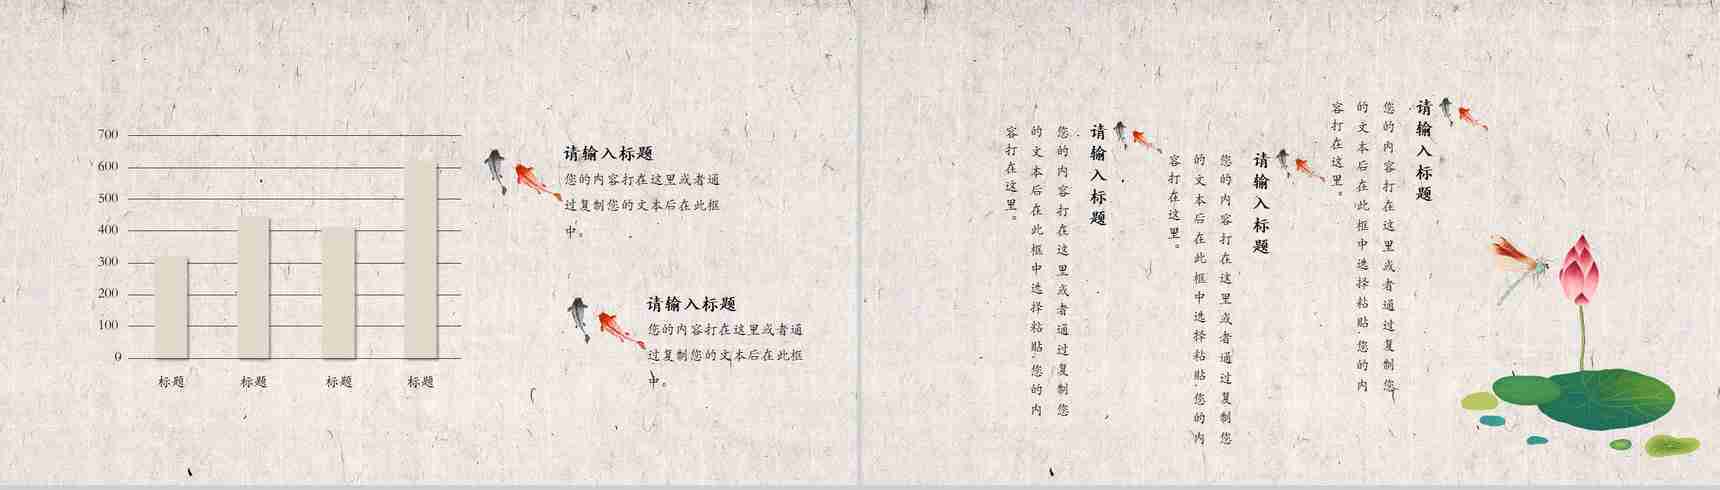 700
600
500
400
300
200
100
0
标题 标题 标题 标题
请输入标题
您的内容打在这里或者通
过复制您的文本后在此框
中。
请输入标题
您的内容打在这里或者通
过复制您的文本后在此框
中。
请输入标题
您的内容打在这里或者通过复制您
的文本后在此框中选择粘贴您的内
容打在这里。
请输入标题
您的内容打在这里或者通过复制您
的文本后在此框中选择粘贴您的内
容打在这里。
请输入标题
您的内容打在这里或者通过复制您
的文本后在此框中选择粘贴您的内
容打在这里。